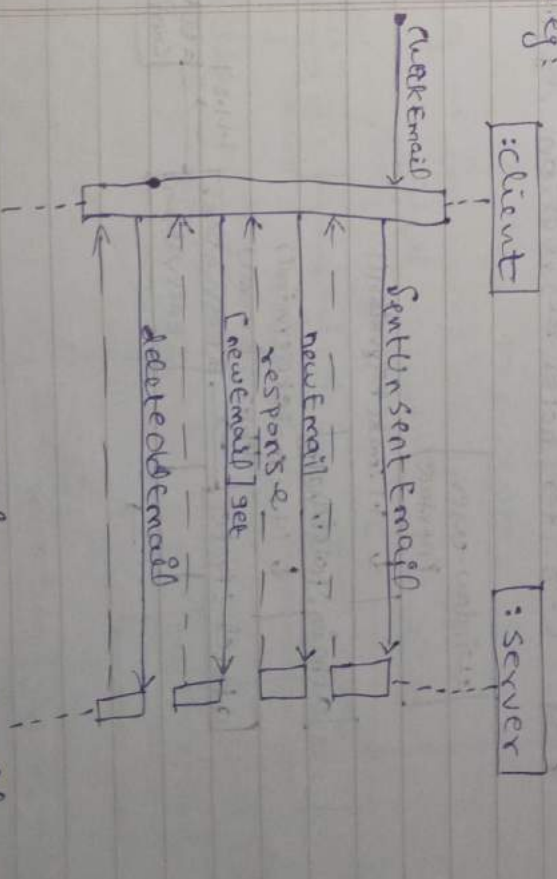 eg:
:Client
:Server
checkEmail
SentUnSentEmail
newEmail
response
[newEmail] get
deleteoldEmail